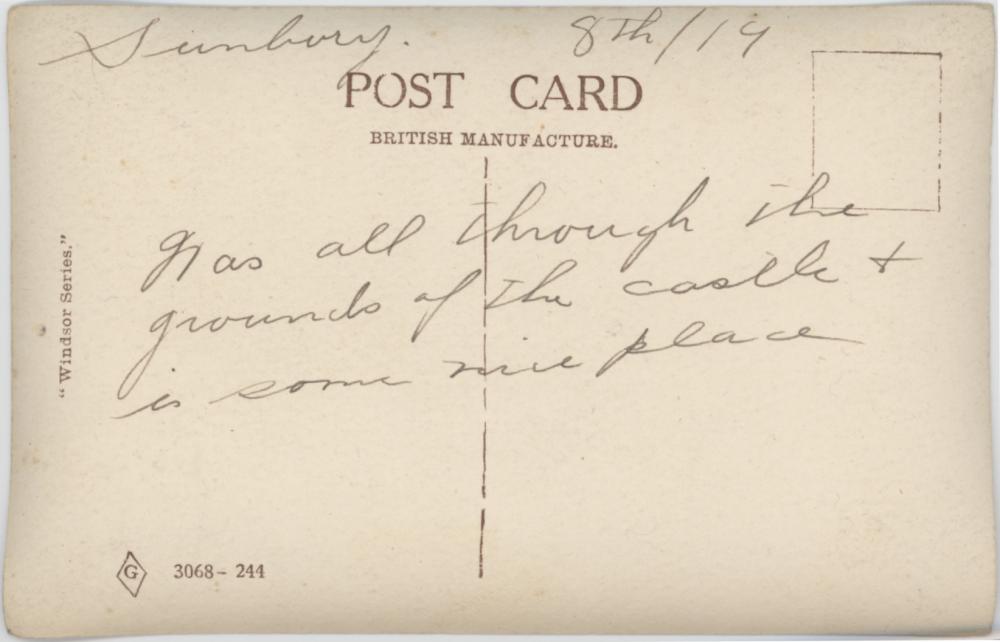 Sunbury. 8th/19
POST CARD
BRITISH MANUFACTURE.
"Windsor Series."
Was all through the
grounds of the castle +
is some nice place
G 3068-244